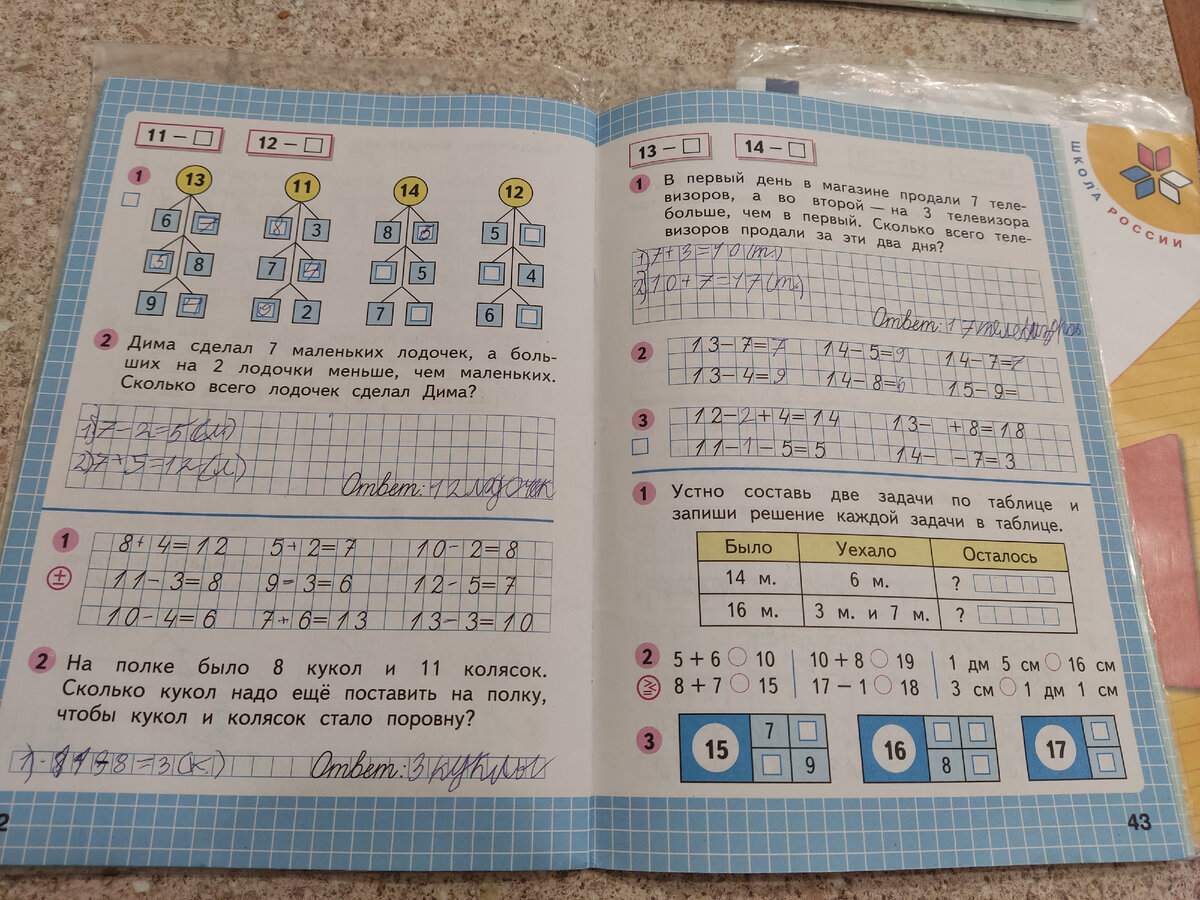 11 – □
12 – □
1
13
11
14
12
6 7
3
8
5
8
7
5
4
9
2
7
6
2
Дима сделал 7 маленьких лодочек, а боль-
ших на 2 лодочки меньше, чем маленьких.
Сколько всего лодочек сделал Дима?
1) 7-2=5(м)
2) 7+5=12(л)
Ответ: 12 лодочек
1
8+4=12 5+2=7 10-2=8
±
11-3=8 9-3=6 12-5=7
10-4=6 7+6=13 13-3=10
2
На полке было 8 кукол и 11 колясок.
Сколько кукол надо ещё поставить на полку,
чтобы кукол и колясок стало поровну?
-8=3(к.) Ответ: 3 куклы
2
13 – □
14 – □
1
В первый день в магазине продали 7 теле-
визоров, а во второй — на 3 телевизора
больше, чем в первый. Сколько всего теле-
визоров продали за эти два дня?
1) 7+3=10(т.)
2) 10+7=17(т.)
Ответ: 17 телевизоров
2
13-7=7 14-5=9 14-7=7
13-4=9 14-8=6 15-9=
3
12-2+4=14 13- +8=18
11-1-5=5 14- -7=3
1
Устно составь две задачи по таблице и
запиши решение каждой задачи в таблице.
Было Уехало Осталось
14 м. 6 м. ?
16 м. 3 м. и 7 м. ?
2
5 + 6 ○ 10 10 + 8 ○ 19 1 дм 5 см ○ 16 см
8 + 7 ○ 15 17 – 1 ○ 18 3 см ○ 1 дм 1 см
3
15 7 □
□ 9
16 □ □
8 □
17 □
□
43
ШКОЛА РОССИИ